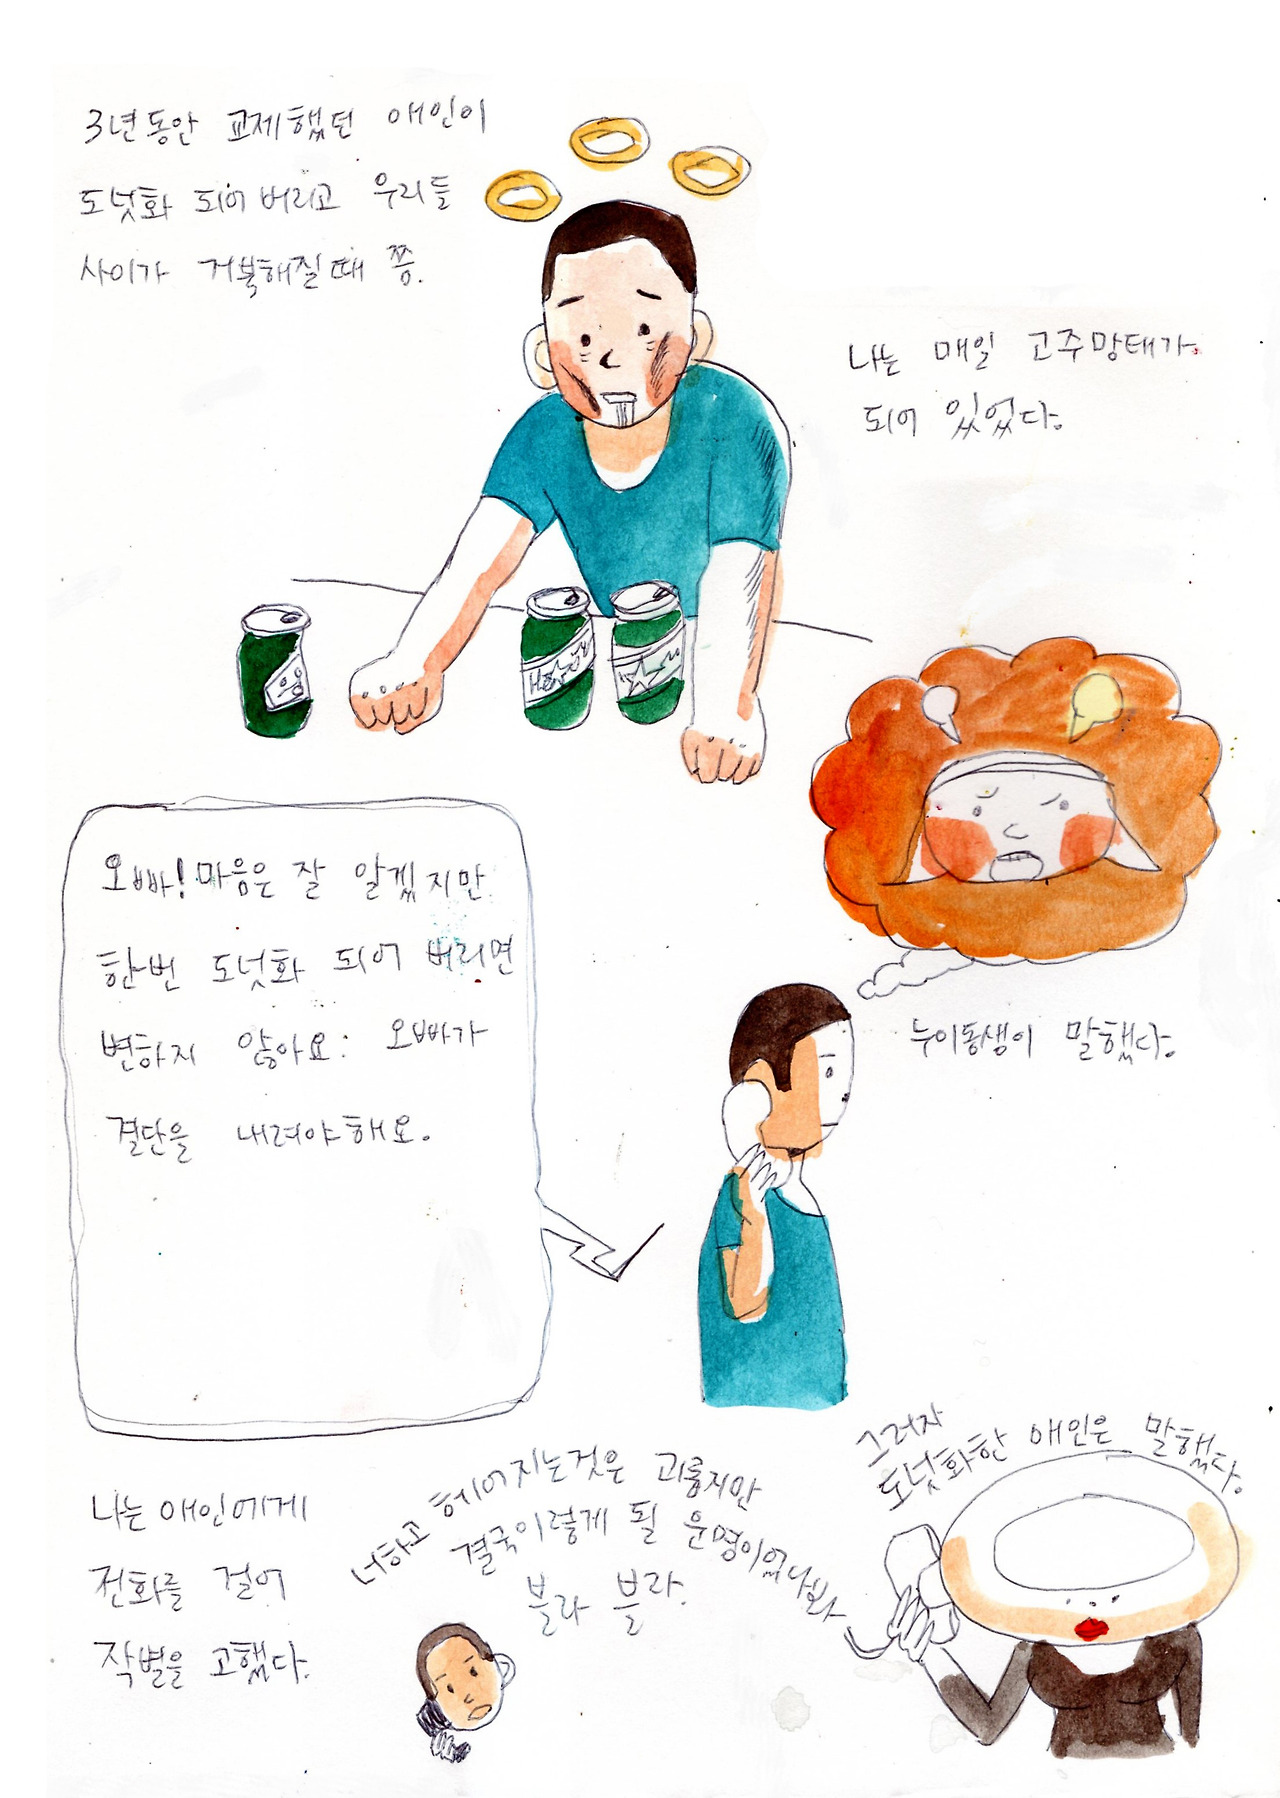 3년동안 교제했던 애인이
도넛화 되어버리고 우리들
사이가 거북해질때 쯤.
나는 매일 고주망태가
되어 있었다.
오빠! 마음은 잘 알겠지만
한번 도넛화 되어 버리면
변하지 않아요. 오빠가
결단을 내려야해요.
누이동생이 말했다.
나는 애인에게
전화를 걸어
작별을 고했다.
그러자
도넛화한 애인은 말했다.
너하고 헤어지는것은 괴롭지만
결국이렇게 될 운명이었나봐
블라 블라.